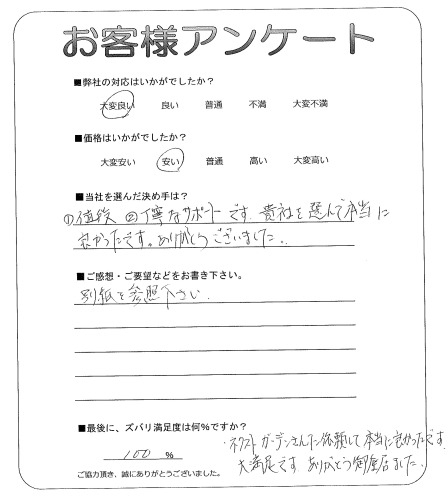 お客様アンケート
■弊社の対応はいかがでしたか?
大変良い 良い 普通 不満 大変不満
■価格はいかがでしたか?
大変安い 安い 普通 高い 大変高い
■当社を選んだ決め手は?
①値段 ②丁寧なサポートです 貴社を選んで本当に
良かったです。ありがとうございました。
■ご感想・ご要望などをお書き下さい。
別紙を参照下さい.
■最後に、ズバリ満足度は何%ですか?
100 %
・ネクストガーデンさんに依頼して本当に良かったです
大満足です ありがとう御座居ました.
ご協力頂き、誠にありがとうございました。